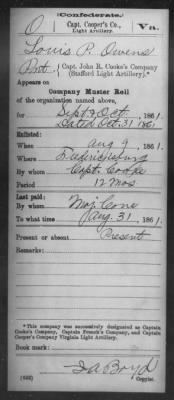 (Confederate.)
O Capt. Cooper's Co., Va.
Light Artillery.
Louis P. Owens
Pvt., Capt. John R. Cooke's Company
(Stafford Light Artillery).*
Appears on
Company Muster Roll
of the organization named above,
for Sept & Oct, 1861.
Dated Oct. 31 1861
Enlisted:
When Aug 9, 1861.
Where Fredericksburg
By whom Capt. Cooke
Period 12 mos
Last paid:
By whom Maj. Cone
To what time Aug. 31, 1861.
Present or absent Present
Remarks:
*This company was successively designated as Captain
Cooke's Company, Captain French's Company, and Captain
Cooper's Company Virginia Light Artillery.
Book mark:
J A Boyd
(642) Copyist.